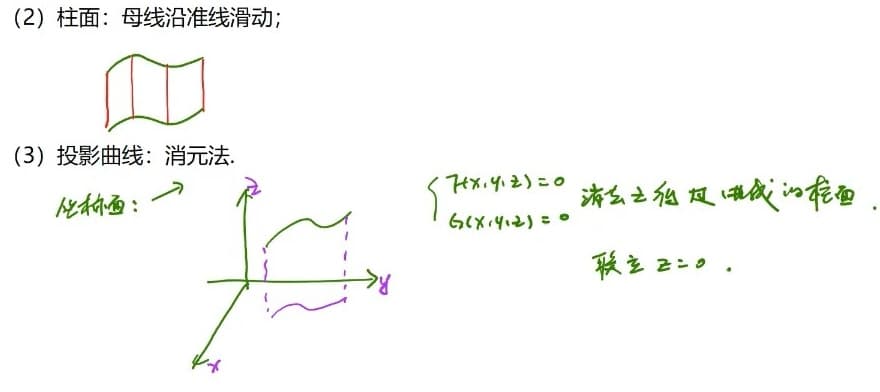 (2) 柱面：母线沿准线滑动；
(3) 投影曲线：消元法.
坐标面：
z
y
x
F(x,y,z)=0
G(x,y,z)=0
消去z得 的柱面.
联立 z=0.